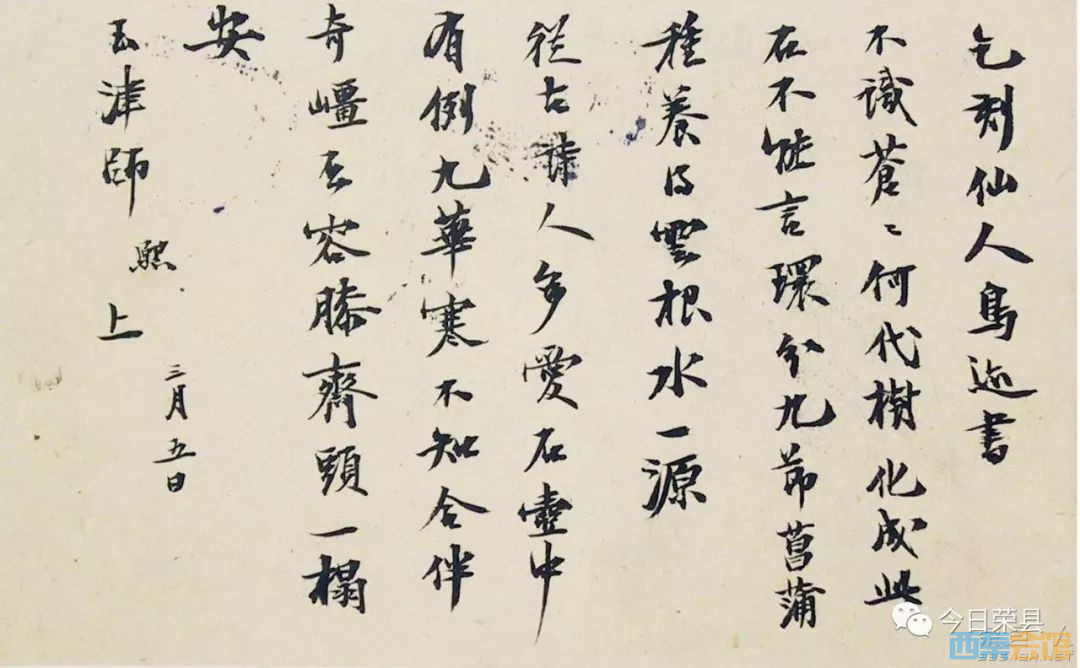 乞刻仙人鳥迹書
不識蒼〻何代樹化成此
石不能言環分九節菖蒲
種養得雲根水一源
從古詩人多愛石壺中
有例九華寒不知合伴
奇礓石容膝齋頭一榻
安
玉津師 熙 上
三月五日
今日荣县